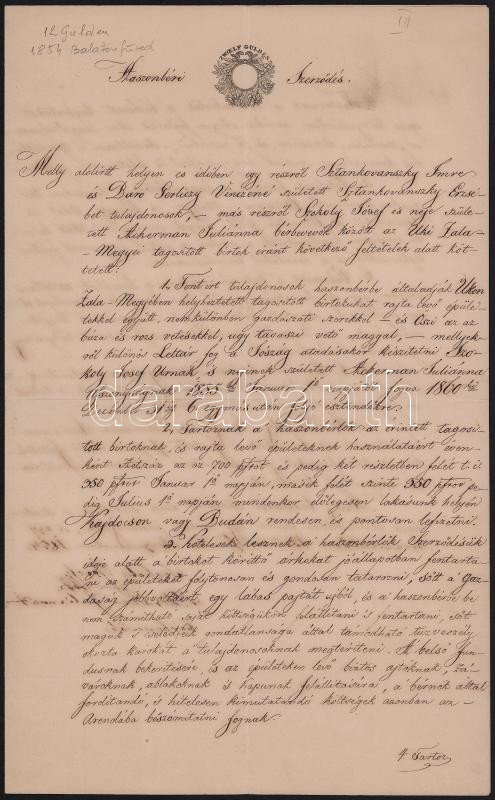 12 Gulden
1854 Balatonfüred
III
ZWŒLF GULDEN
Haszonbéri Szerződés.
Melly alólirtt helyen és időben egy részről Sztankovanszky Imre
és Báró Gerliczy Vinczéné született Sztankovanszky Erzsé-
bet tulajdonosok, – más részről Szokoly József és neje szüle-
tett Ackerman Juliánna bérbevevők között az Ukki Zala-
Megyei tagositott birtok eránt következő feltételek alatt köt-
tetett:
1. Font irt tulajdonosok haszonbérbe általadják Ukkon
Zala-Megyében helyheztetett tagositott birtokukat rajta levő épüle-
tekkel együtt, nem különben gazdasági szerekkel – és Őszi az az
búza és rozs vetésekkel, úgy tavaszi vető maggal, – mellyek-
ről különös Leltár fog a Jószág átadásakor készitetni Szo-
koly József Urnak és nejének született Ackerman Juliánna
Asszonyságnak 1855 Januar 1ő napjától fogva 1860
December 31ig 6 egymás után folyó esztendőkre.
2. Tartoznak a haszonbérlők az érintett tagosi-
tott birtoknak, és rajta levő épületeknek használatáért éven-
ként Hétszáz az az 700 pftot és pedig két részletben felét t. i.
350 pftot Januar 1ő napján, másik felét szinte 350 pftot pe-
dig Julius 1ő napján mindenkor előlegesen lakásunk helyén
Kajdocson vagy Budán rendesen, és pontosan lefizetni.
3. Kötelesek lesznek a haszonbérlők Szerződésük
ideje alatt a birtokot köritő árkokat jó állapotban fentarta-
ni az épületeket folytonosan és gondosan tatarozni, sőtt a gaz-
daság jobbvoltáért egy lábas pajtát ujból, és a haszonbérbe bé
nem számitható saját költségükön felállitani és fentartani, sőt
maguk s cselédjeik gondatlansága által támadható tűzveszély
okozta károkat a tulajdonosoknak megtériteni. A belső fun-
dusnak bekeritésére, és az épületeken levő biztos ajtóknak, zá-
vároknak, ablakoknak és kapunak felállitására, a bérnök által
forditandó, és hitelesen kimutatandó költségek azonban az á-
rendába bészámitatni fognak.
4. Tartoz
darabanth